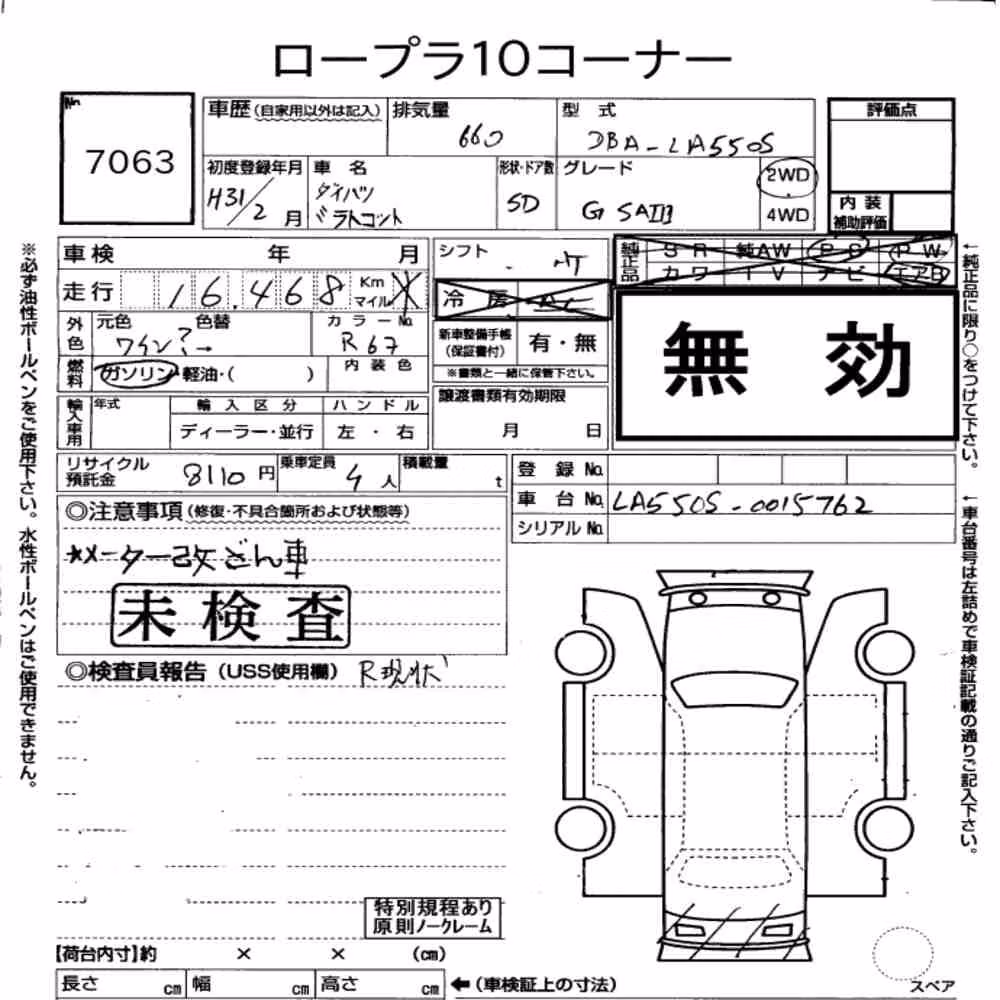 ロープラ10コーナー
No.
7063
車歴 (自家用以外は記入)
排気量
660
型 式
DBA-LA550S
評価点
初度登録年月
H31/2 月
車 名
ダイハツ
形状・ドア数
5D
グレード
G SAⅢ
2WD
4WD
内 装
補助評価
車検 年 月
シフト
純正品
S R 純AW P S P W
カワ T V ナビ エアB
走行 16.468 Km マイル
冷 房
無 効
外色
元色 色替
ワイン ? →
カラーNo.
R67
新車整備手帳
(保証書付)
有・無
※書類と一緒に保管下さい。
燃料
ガソリン・軽油・( )
内 装 色
譲渡書類有効期限
月 日
輸入車用
年式
輸 入 区 分
ハ ン ド ル
ディーラー・並行
左 ・ 右
リサイクル
預託金
8110 円
乗車定員
4 人
積載量
t
登 録 No.
車 台 No. LA550S-0015762
シリアル No.
◎注意事項 (修復・不具合箇所および状態等)
*メーター改ざん車
未 検 査
◎検査員報告 (USS使用欄) R現状
特別規程あり
原則ノークレーム
【荷台内寸】約 × × (cm)
長さ cm 幅 cm 高さ cm
←(車検証上の寸法)
スペア
※必ず油性ボールペンをご使用下さい。水性ボールペンはご使用できません。
←純正品に限り○をつけて下さい。
←車台番号は左詰めで車検証記載の通りご記入下さい。